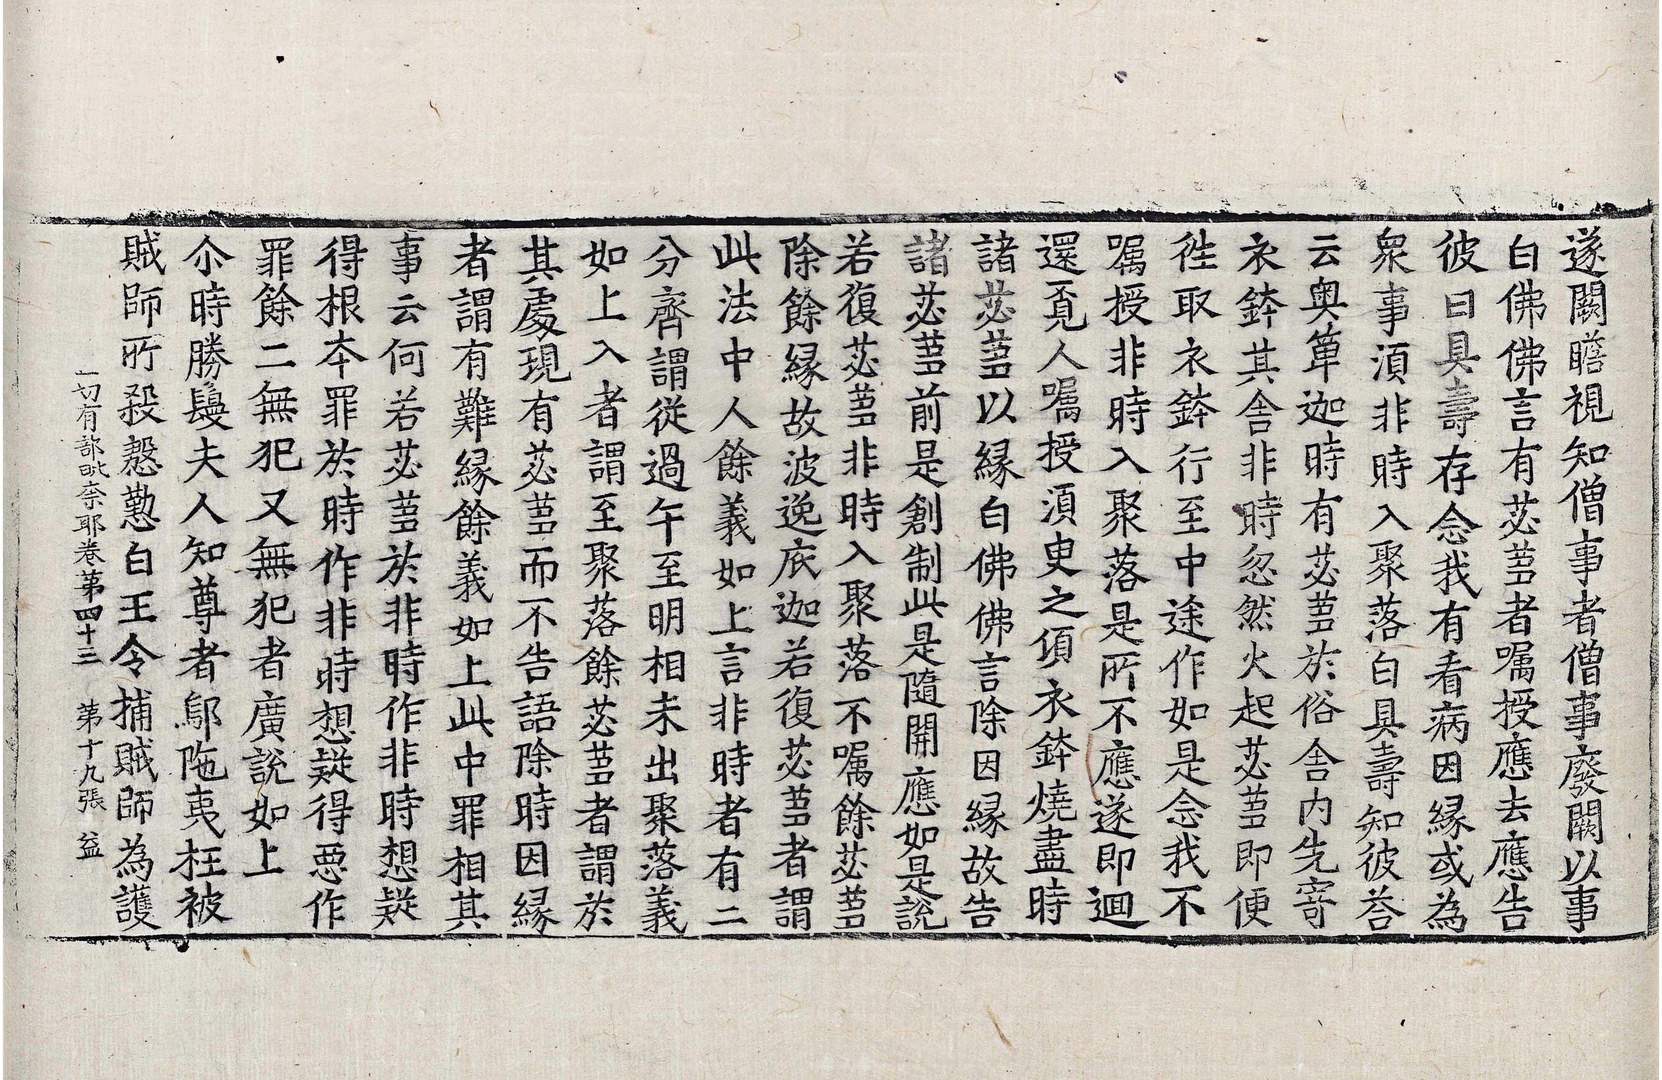 遂闕瞻視知僧事者僧事廢闕以事
白佛佛言有苾芻者囑授應去應告
彼曰具壽存念我有看病因緣或為
衆事湏非時入聚落白具壽知彼荅
云奥箄迦時有苾芻於俗舍内先寄
衣鉢其舍非時忽然火起苾芻即便
徃取衣鉢行至中途作如是念我不
囑授非時入聚落是所不應遂即迴
還覓人囑授湏臾之頃衣鉢燒盡時
諸苾芻以緣白佛佛言除因緣故告
諸苾芻前是創制此是隨開應如是說
若復苾芻非時入聚落不囑餘苾芻
除餘緣故波逸底迦若復苾芻者謂
此法中人餘義如上言非時者有二
分齊謂從過午至明相未出聚落義
如上入者謂至聚落餘苾芻者謂於
其處現有苾芻而不告語除時因緣
者謂有難緣餘義如上此中罪相其
事云何若苾芻於非時作非時想疑
得根本罪於時作非時想疑得惡作
罪餘二無犯又無犯者廣說如上
尒時勝鬘夫人知尊者鄔陁夷枉被
賊師所殺慇懃白王令捕賊師為護
一切有部毗奈耶卷第四十三 第十九張 益